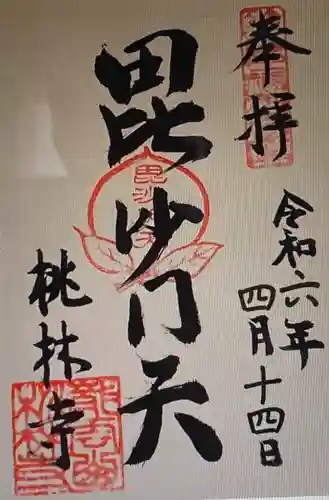 奉拝
令和六年
四月十四日
毘沙門天
桃林寺